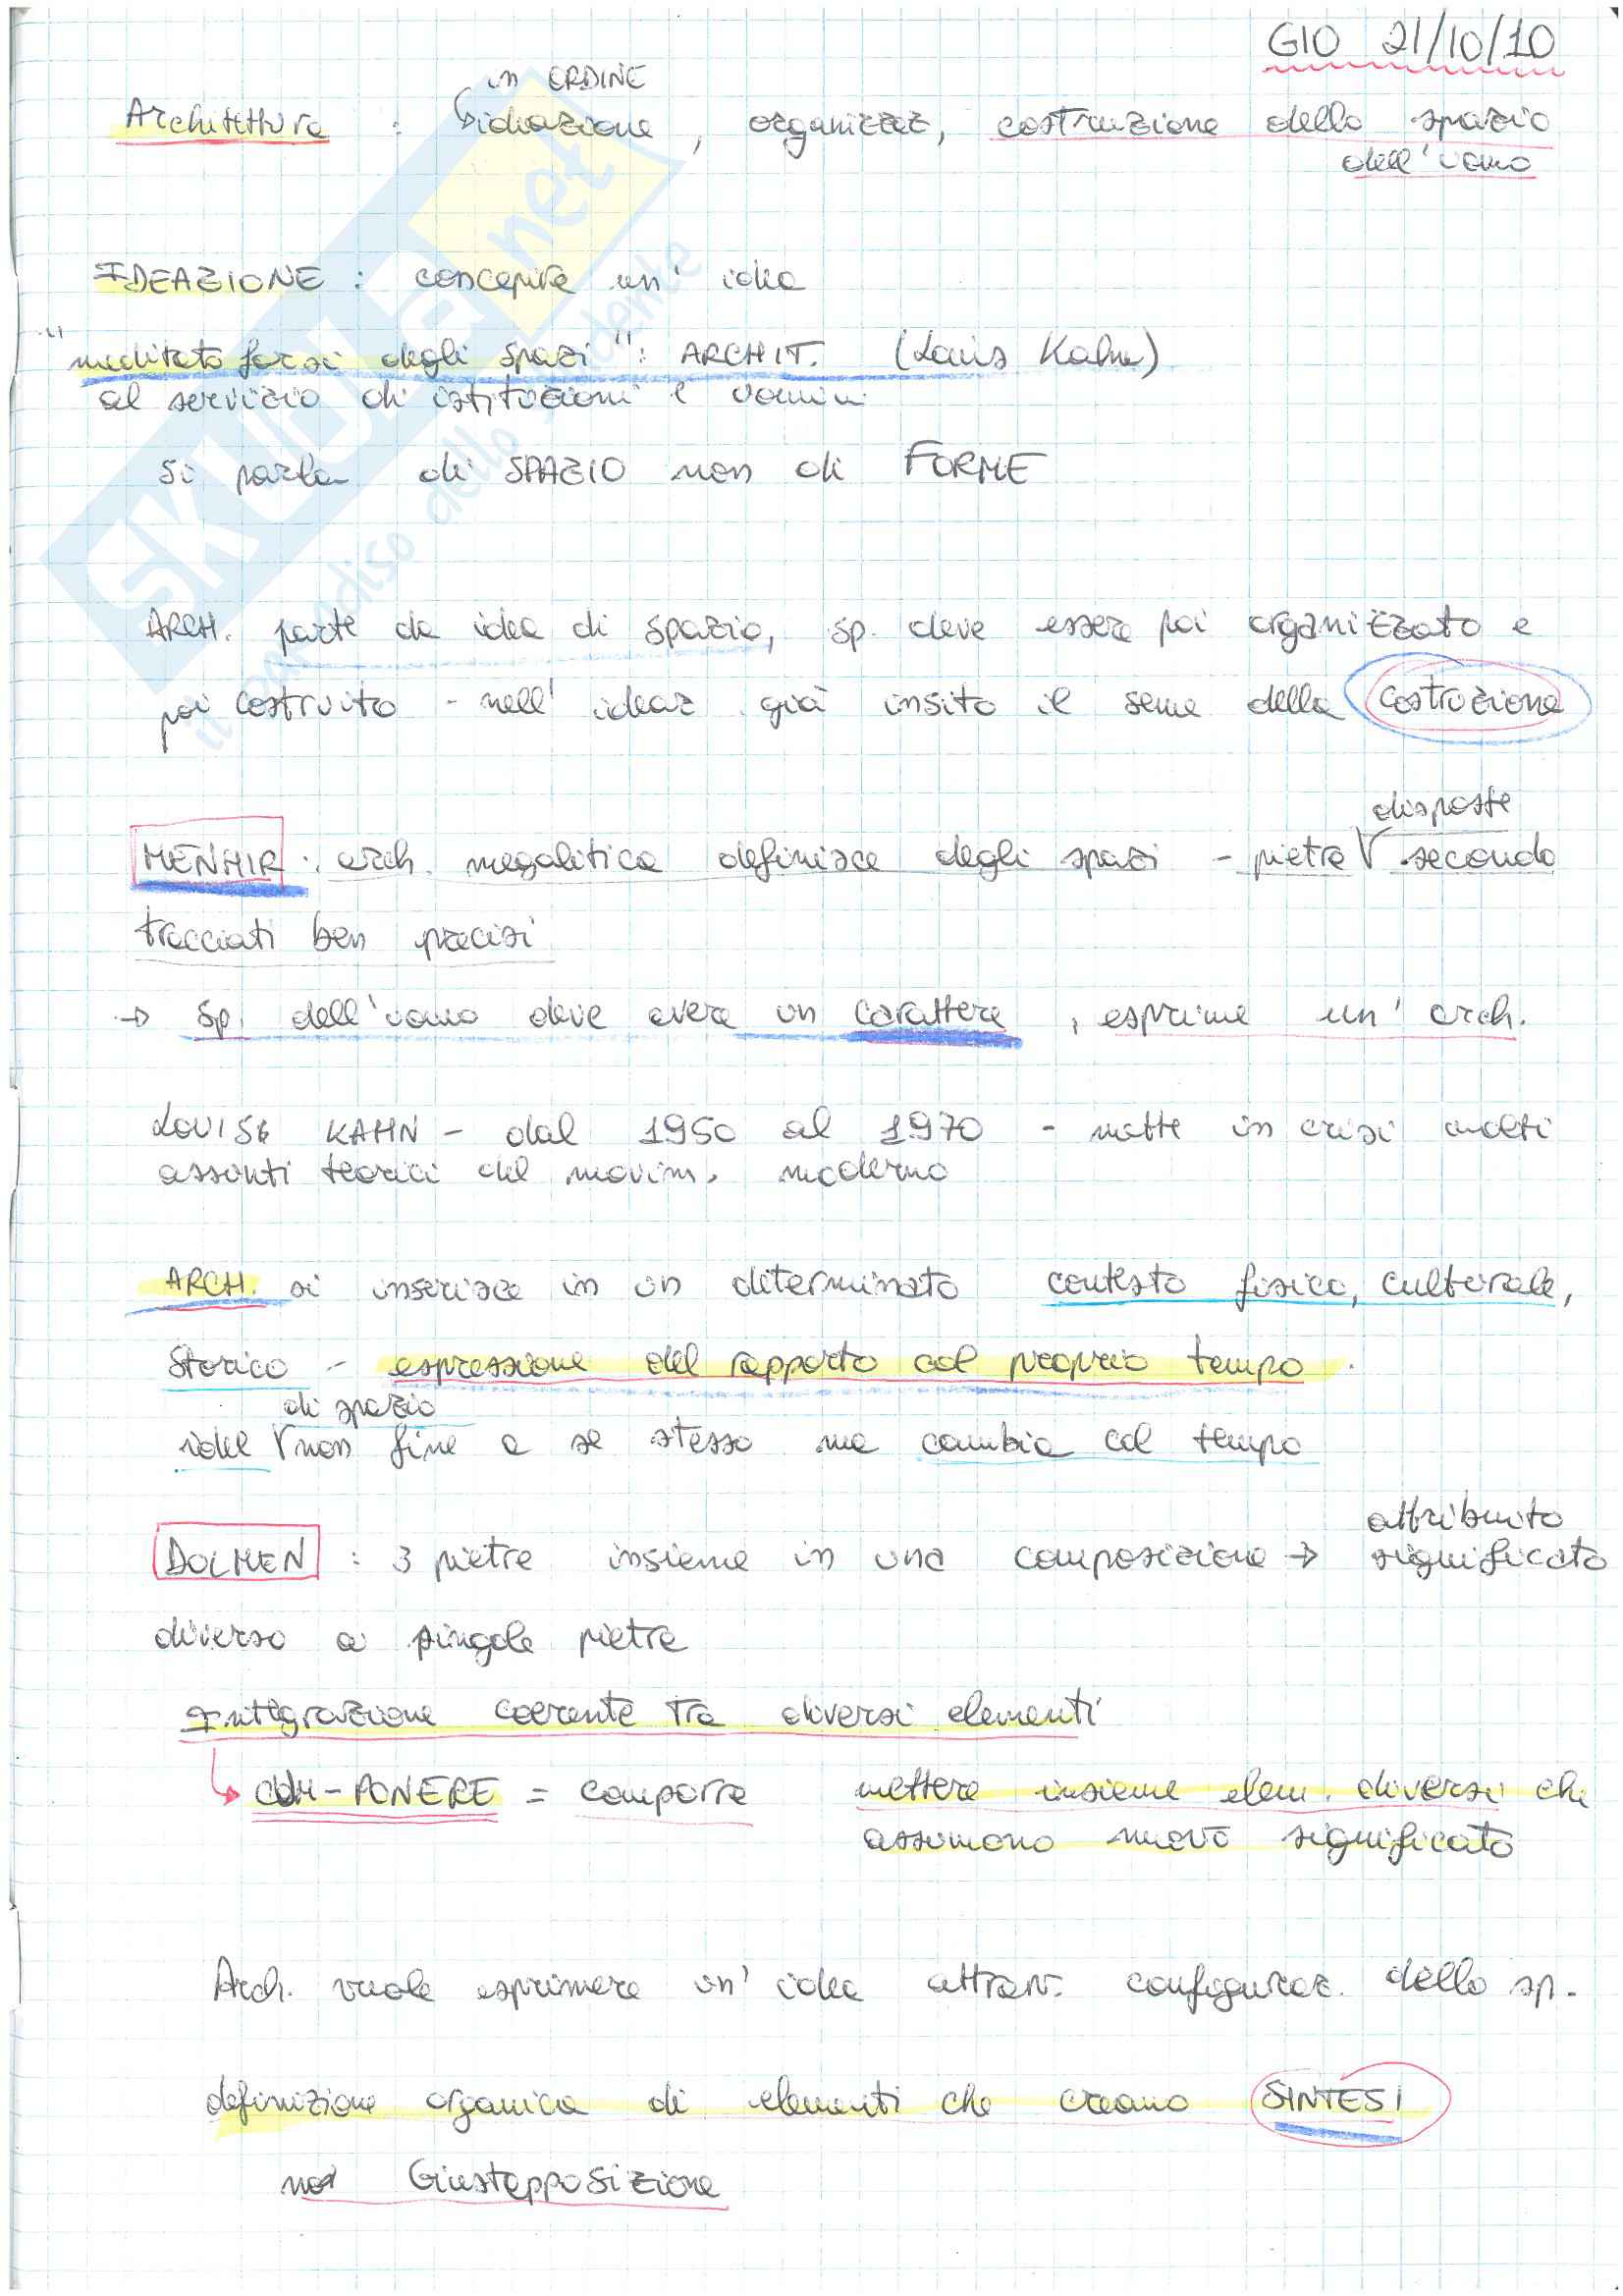 GIO 21/10/10
in ORDINE
Architettura : ideazione, organizzaz, costruzione dello spazio
dell'uomo
IDEAZIONE : concepire un' idea
"meditato farsi degli spazi": ARCHIT. (Louis Kahn)
al servizio di istituzioni e uomini
Si parla di SPAZIO non di FORME
ARCH. parte da idea di spazio, sp. deve essere poi organizzato e
poi costruito - nell' ideaz. già insito il seme della costruzione
disposte
MENHIR : arch. megalitica definisce degli spazi - pietre secondo
tracciati ben precisi
→ Sp. dell'uomo deve avere un carattere, esprime un' arch.
LOUIS KAHN - dal 1950 al 1970 - mette in crisi molti
assunti teorici del movim. moderno
ARCH. si inserisce in un determinato contesto fisico, culturale,
storico - espressione del rapporto col proprio tempo.
di spazio
idea non fine a se stesso ma cambia col tempo
attribuito
DOLMEN : 3 pietre insieme in una composizione → significato
diverso a singole pietre
Integrazione coerente tra diversi elementi
COM-PONERE = comporre mettere insieme elem. diversi che
assumono nuovo significato
Arch. vuole esprimere un' idea attrav. configuraz. dello sp.
definizione organica di elementi che creano SINTESI
non Giustapposizione
SKUOLA.net
il paradiso dello studente